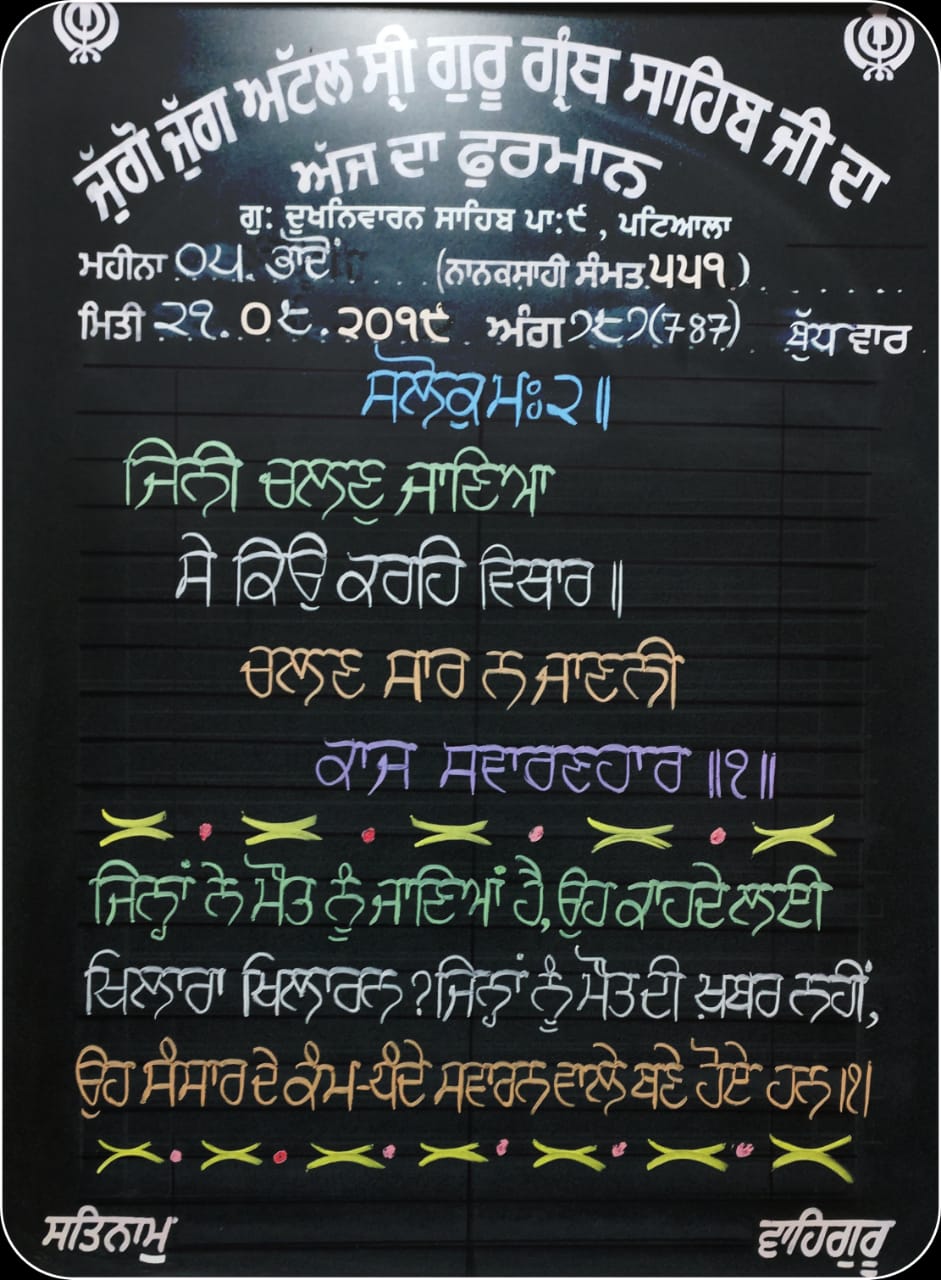 ਜੁੱਗੋ ਜੁੱਗ ਅਟੱਲ ਸ੍ਰੀ ਗੁਰੂ ਗ੍ਰੰਥ ਸਾਹਿਬ ਜੀ ਦਾ
ਅੱਜ ਦਾ ਫੁਰਮਾਨ
ਗੁ: ਦੁਖਨਿਵਾਰਨ ਸਾਹਿਬ ਪਾ:੯, ਪਟਿਆਲਾ
ਮਹੀਨਾ ੦੫. ਭਾਦੋਂ (ਨਾਨਕਸ਼ਾਹੀ ਸੰਮਤ ੫੫੧)
ਮਿਤੀ ੨੧.੦੮.੨੦੧੯ ਅੰਗ ੭੮੭(787) ਬੁੱਧ ਵਾਰ
ਸਲੋਕੁ ਮਃ ੨॥
ਜਿਨੀ ਚਲਣੁ ਜਾਣਿਆ
ਸੇ ਕਿਉ ਕਰਹਿ ਵਿਥਾਰ॥
ਚਲਣ ਸਾਰ ਨ ਜਾਣਨੀ
ਕਾਜ ਸਵਾਰਣਹਾਰ॥੧॥
ਜਿਨ੍ਹਾਂ ਨੇ ਮੌਤ ਨੂੰ ਜਾਣਿਆਂ ਹੈ, ਉਹ ਕਾਹਦੇ ਲਈ
ਖਿਲਾਰਾ ਖਿਲਾਰਨ? ਜਿਨ੍ਹਾਂ ਨੂੰ ਮੌਤ ਦੀ ਖ਼ਬਰ ਨਹੀਂ,
ਉਹ ਸੰਸਾਰ ਦੇ ਕੰਮ-ਧੰਦੇ ਸਵਾਰਨ ਵਾਲੇ ਬਣੇ ਹੋਏ ਹਨ॥੧।
ਸਤਿਨਾਮੁ ਵਾਹਿਗੁਰੂ